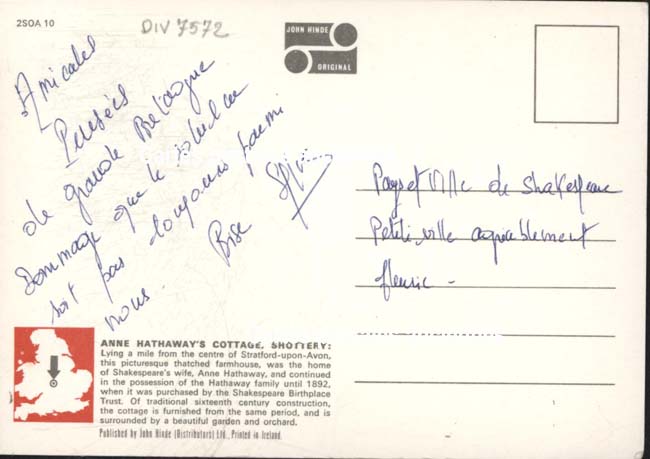 2SOA 10
DIV 7572
JOHN HINDE
ORIGINAL
Amicales
Pensées
de grande Bretagne
Dommage que le soleil ne
soit pas toujours parmi
nous.
Bise
Pays et Ville de Shakespeare
Petite ville agréablement
fleurie -
ANNE HATHAWAY'S COTTAGE, SHOTTERY:
Lying a mile from the centre of Stratford-upon-Avon,
this picturesque thatched farmhouse, was the home
of Shakespeare's wife, Anne Hathaway, and continued
in the possession of the Hathaway family until 1892,
when it was purchased by the Shakespeare Birthplace
Trust. Of traditional sixteenth century construction,
the cottage is furnished from the same period, and is
surrounded by a beautiful garden and orchard.
Published by John Hinde (Distributors) Ltd., Printed in Ireland.